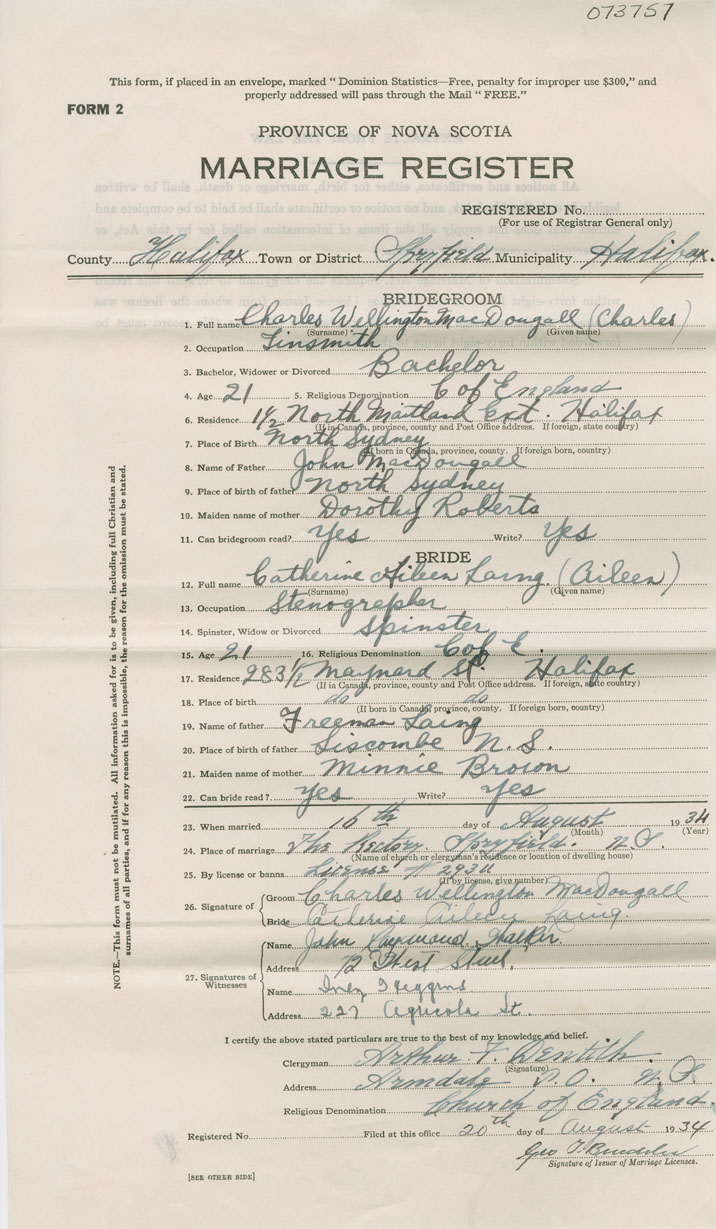 073757
This form, if placed in an envelope, marked " Dominion Statistics—Free, penalty for improper use $300," and
properly addressed will pass through the Mail " FREE."
FORM 2
PROVINCE OF NOVA SCOTIA
MARRIAGE REGISTER
REGISTERED No.
(For use of Registrar General only)
County Halifax Town or District Spryfield Municipality Halifax.
BRIDEGROOM
1. Full name Charles Wellington MacDougall (Charles)
(Surname) (Given name)
2. Occupation Tinsmith
3. Bachelor, Widower or Divorced Bachelor
4. Age 21 5. Religious Denomination C of England
6. Residence 1½ North Maitland Ext. Halifax
(If in Canada, province, county and Post Office address. If foreign, state country)
7. Place of Birth North Sydney
(If born in Canada, province, county. If foreign born, country)
8. Name of Father John MacDougall
9. Place of birth of father North Sydney
10. Maiden name of mother Dorothy Roberts
11. Can bridegroom read? Yes Write? Yes
BRIDE
12. Full name Catherine Aileen Laing (Aileen)
(Surname) (Given name)
13. Occupation Stenographer
14. Spinster, Widow or Divorced Spinster
15. Age 21 16. Religious Denomination C of E.
17. Residence 283½ Maynard St. Halifax
(If in Canada, province, county and Post Office address. If foreign, state country)
18. Place of birth do do
(If born in Canada, province, county. If foreign born, country)
19. Name of father Freeman Laing
20. Place of birth of father Liscombe N. S.
21. Maiden name of mother Minnie Brown
22. Can bride read? Yes Write? Yes
23. When married 16th day of August 1934
(Month) (Year)
24. Place of marriage The Rectory Spryfield. N.S.
(Name of church or clergyman's residence or location of dwelling house)
25. By license or banns License # 2934
(If by license, give number)
26. Signature of
Groom Charles Wellington MacDougall
Bride Catherine Aileen Laing.
27. Signatures of Witnesses
Name John Raymond Walker.
Address 72 Street.
Name Inez Higgins
Address 227 Agricola St.
I certify the above stated particulars are true to the best of my knowledge and belief.
Clergyman Arthur F. Bentith.
(Signature)
Address Armdale P.O. N.S.
Religious Denomination Church of England.
Registered No. Filed at this office 20th day of August 1934
Geo T.
Signature of Issuer of Marriage Licenses.
[SEE OTHER SIDE]
NOTE.—This form must not be mutilated. All information asked for is to be given, including full Christian and
surnames of all parties, and if for any reason this is impossible, the reason for the omission must be stated.